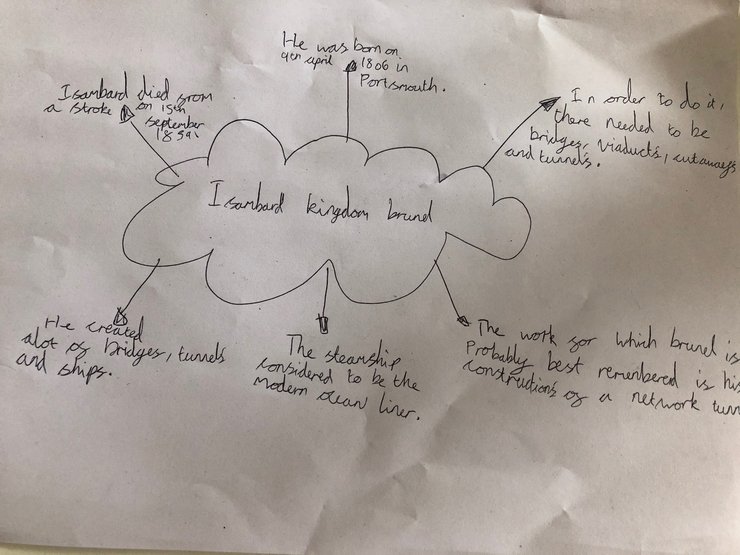 He was born on
9th april 1806 in
Portsmouth.
Isambard died from
a stroke on 15th
september
1859.
In order to do it,
there needed to be
bridges, viaducts, cutaways
and tunnels.
Isambard kingdom brunel
He created
alot of bridges, tunnels
and ships.
The steamship
considered to be the
modern ocean liner.
The work for which brunel is
Probably best remembered is his
constructions of a network tunn